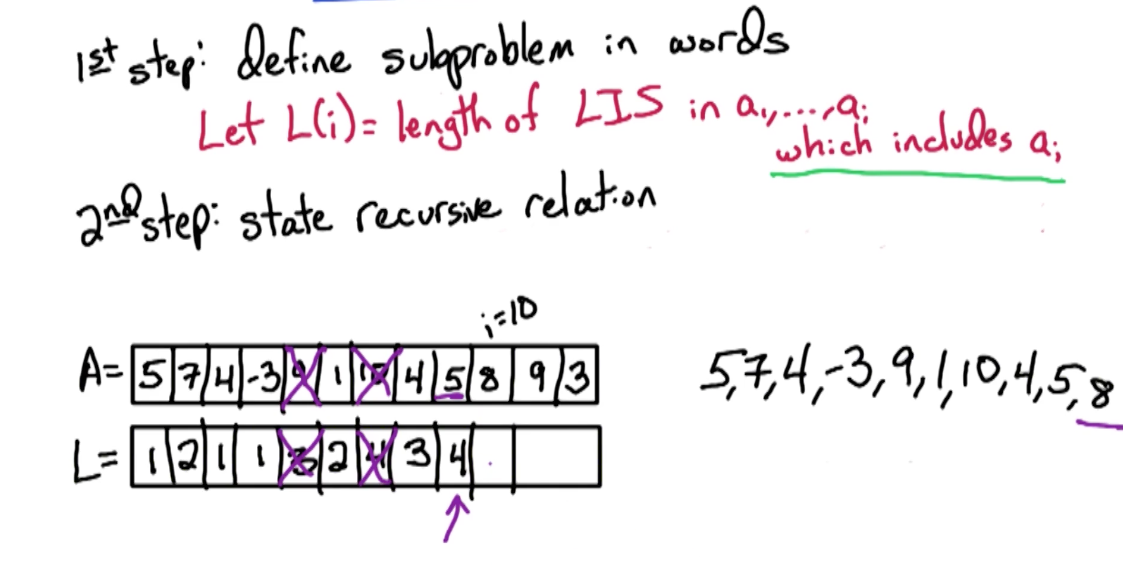 1st step: define subproblem in words
Let L(i) = length of LIS in a₁,...,aᵢ
which includes aᵢ
2nd step: state recursive relation
i=10
A= 5 7 4 -3 9 1 10 4 5 8 9 3
5,7,4,-3,9,1,10,4,5,8
L= 1 2 1 1 3 2 4 3 4